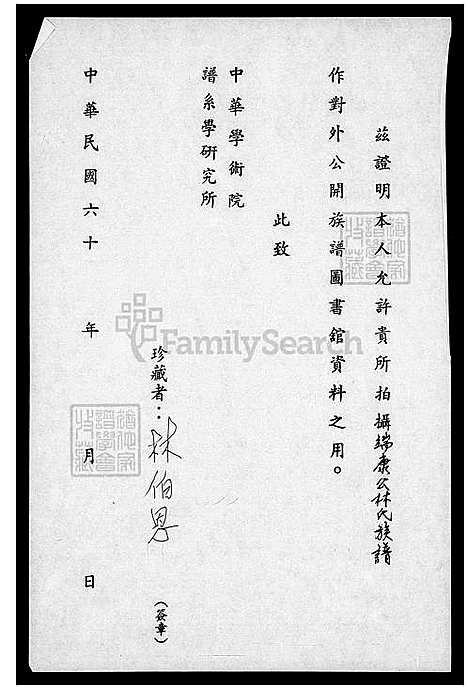 茲證明本人允許貴所拍攝端康公林氏族譜
作對外公開族譜圖書舘資料之用。
此致
中華學術院
譜系學研究所
珍藏者：林伯恩
(簽章)
中華民國六十 年 月 日
FamilySearch